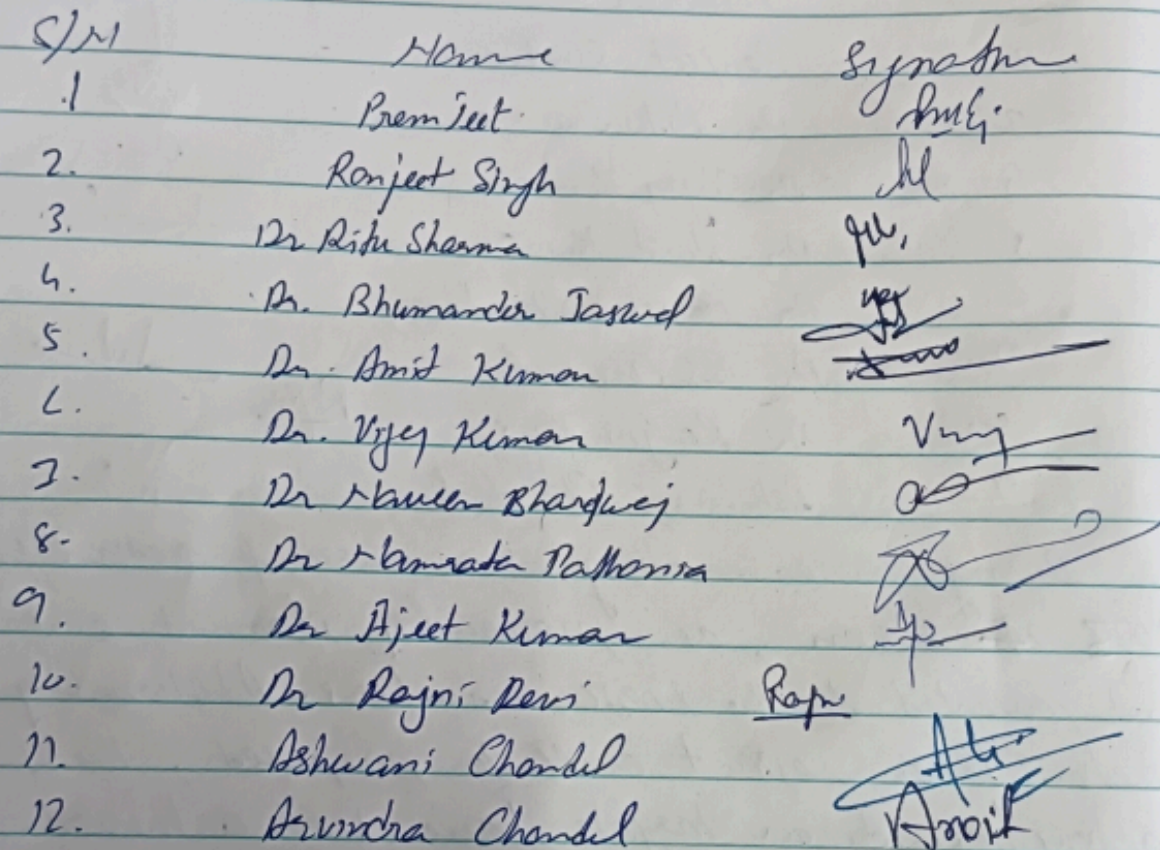 S/N Name Signature
1 Premjeet
2. Ranjeet Singh
3. Dr Ritu Sharma
4. Dr. Bhumander Jaswal
5. Dr. Amit Kumar
6. Dr. Vijay Kumar
7. Dr Naveen Bhardwaj
8. Dr Namrata Pathania
9. Dr Ajeet Kumar
10. Dr Rajni Devi
11. Ashwani Chandel
12. Arvindra Chandel